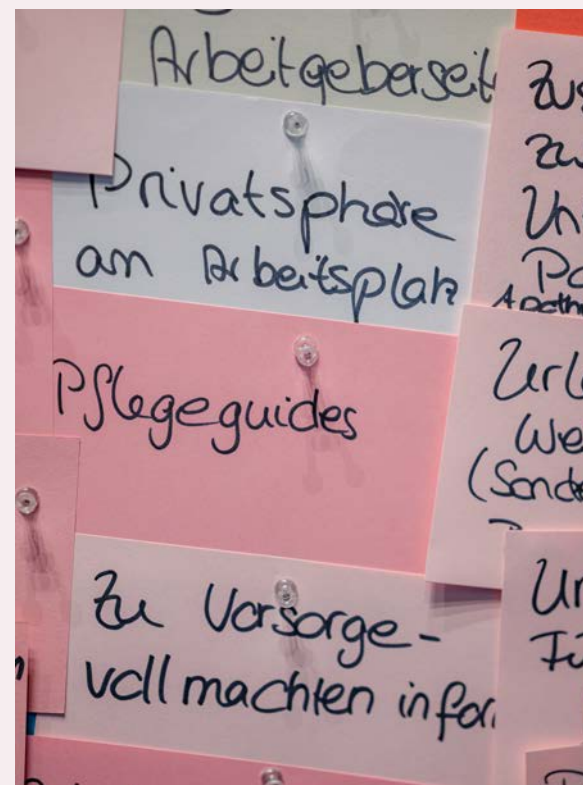 Arbeitgeberseit
Privatsphäre
am Arbeitsplatz
Pflegeguides
Zu Vorsorge-
vollmachten infor
Zus
zu
Un
Url
We
(Sonde
Un
Fü